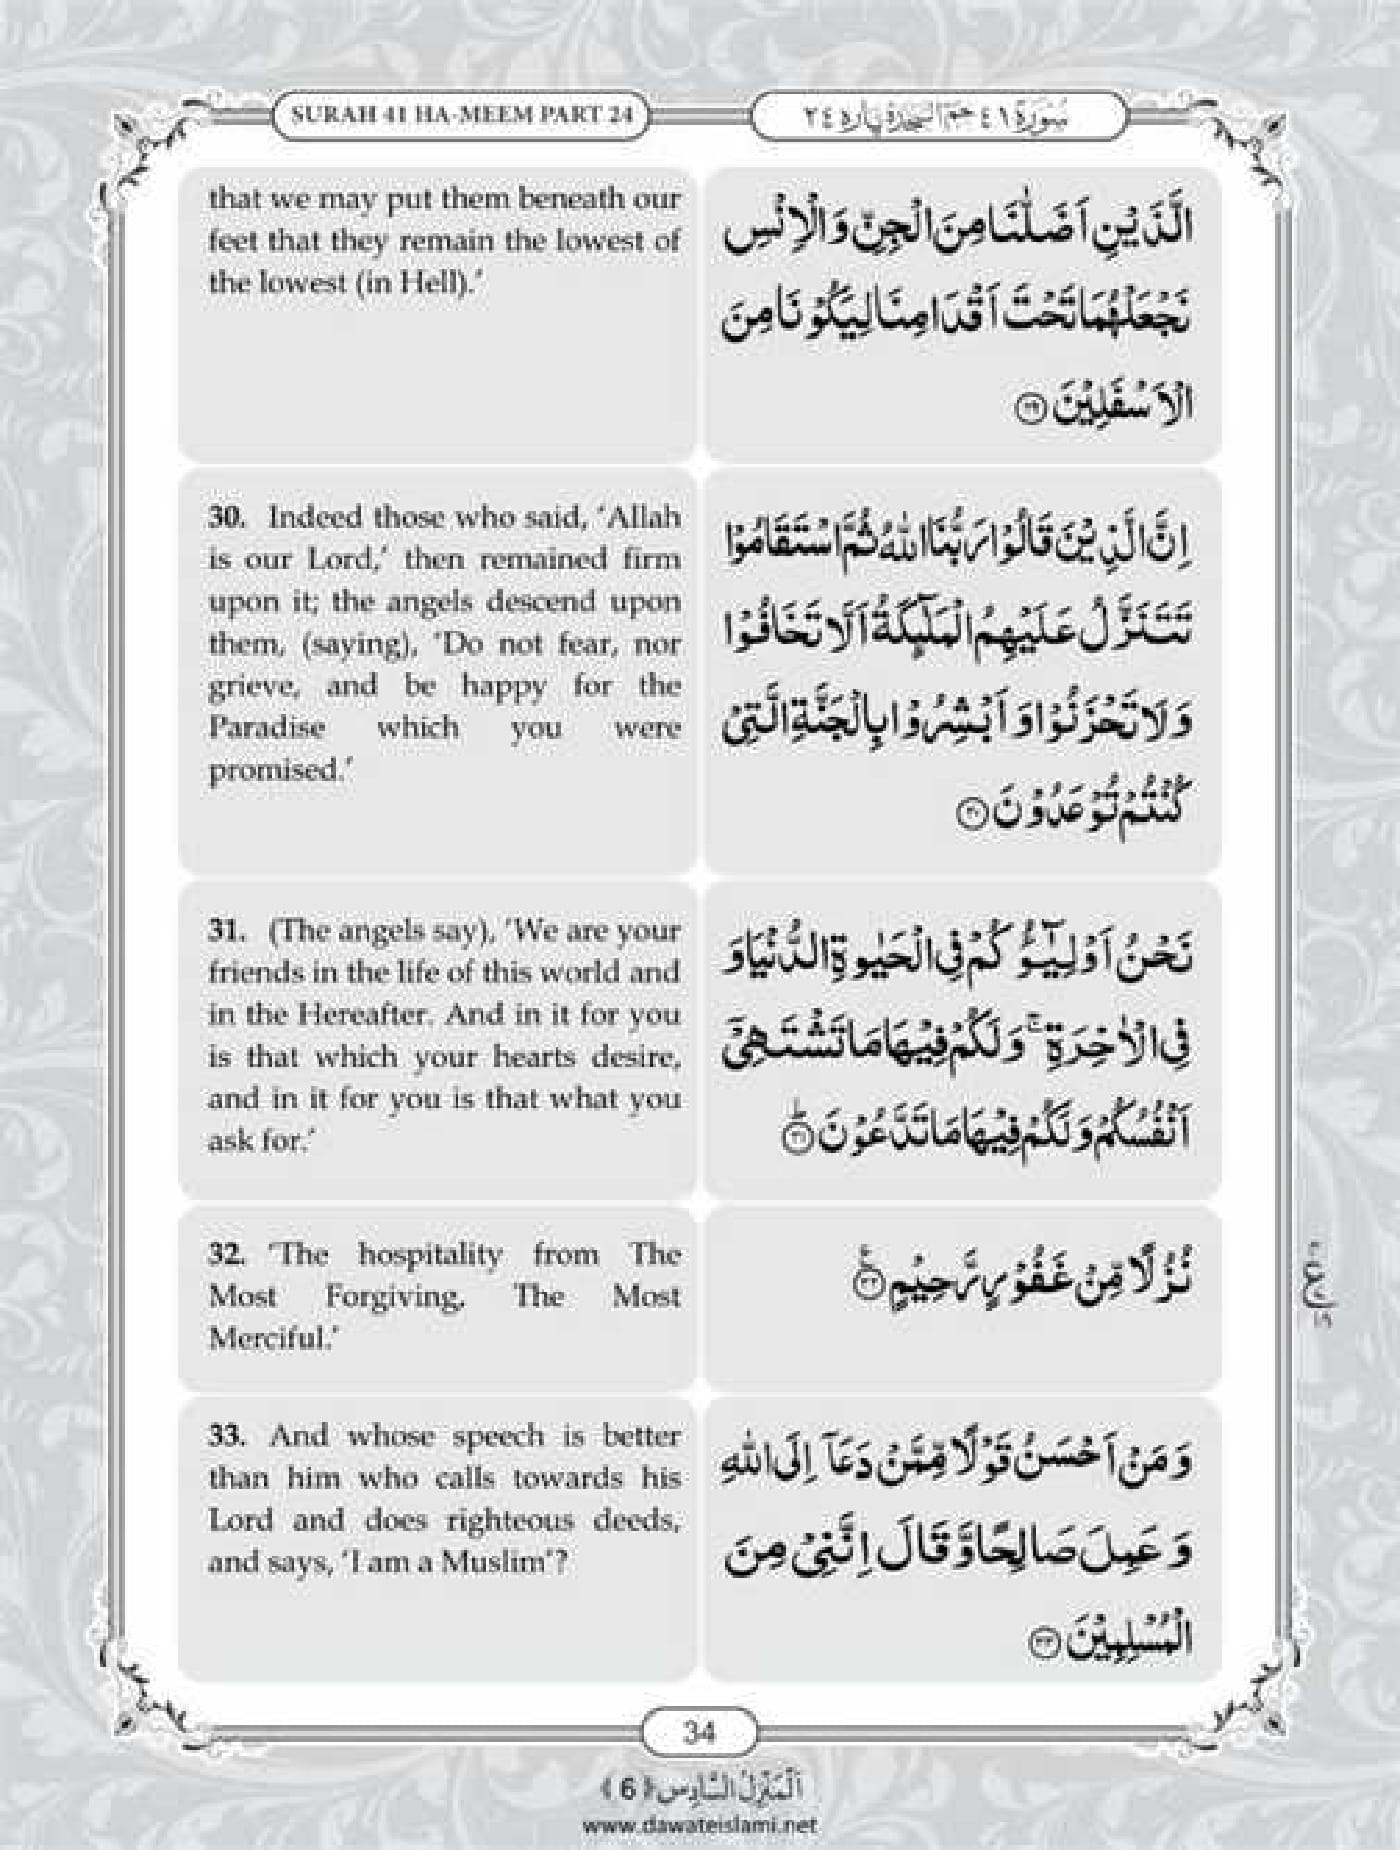 SURAH 41 HA-MEEM PART 24
سُوْرَةُ ٤١ حٰمٓ السَّجْدَة پارہ ٢٤
that we may put them beneath our
feet that they remain the lowest of
the lowest (in Hell).’
الَّذَيْنِ اَضَلّٰنَا مِنَ الْجِنِّ وَ الْاِنْسِ
نَجْعَلْهُمَا تَحْتَ اَقْدَامِنَا لِيَكُوْنَا مِنَ
الْاَسْفَلِيْنَ ﴿۲۹﴾
30. Indeed those who said, ‘Allah
is our Lord,’ then remained firm
upon it; the angels descend upon
them, (saying), ‘Do not fear, nor
grieve, and be happy for the
Paradise which you were
promised.’
اِنَّ الَّذِيْنَ قَالُوْا رَبُّنَا اللّٰهُ ثُمَّ اسْتَقَامُوْا
تَتَنَزَّلُ عَلَيْهِمُ الْمَلٰٓىِٕكَةُ اَلَّا تَخَافُوْا
وَ لَا تَحْزَنُوْا وَ اَبْشِرُوْا بِالْجَنَّةِ الَّتِیْ
كُنْتُمْ تُوْعَدُوْنَ ﴿۳۰﴾
31. (The angels say), ‘We are your
friends in the life of this world and
in the Hereafter. And in it for you
is that which your hearts desire,
and in it for you is that what you
ask for.’
نَحْنُ اَوْلِيٰٓؤُكُمْ فِی الْحَيٰوةِ الدُّنْيَا وَ
فِی الْاٰخِرَةِ ۚ وَ لَكُمْ فِيْهَا مَا تَشْتَهِیْۤ
اَنْفُسُكُمْ وَ لَكُمْ فِيْهَا مَا تَدَّعُوْنَ ﴿ؕ۳۱﴾
32. ‘The hospitality from The
Most Forgiving, The Most
Merciful.’
نُزُلًا مِّنْ غَفُوْرٍ رَّحِيْمٍ ﴿۳۲﴾
33. And whose speech is better
than him who calls towards his
Lord and does righteous deeds,
and says, ‘I am a Muslim’?
وَ مَنْ اَحْسَنُ قَوْلًا مِّمَّنْ دَعَاۤ اِلَی اللّٰهِ
وَ عَمِلَ صَالِحًا وَّ قَالَ اِنَّنِیْ مِنَ
الْمُسْلِمِيْنَ ﴿۳۳﴾
34
اَلْمَنْزِلُ السَّادِس ﴿6﴾
www.dawateislami.net